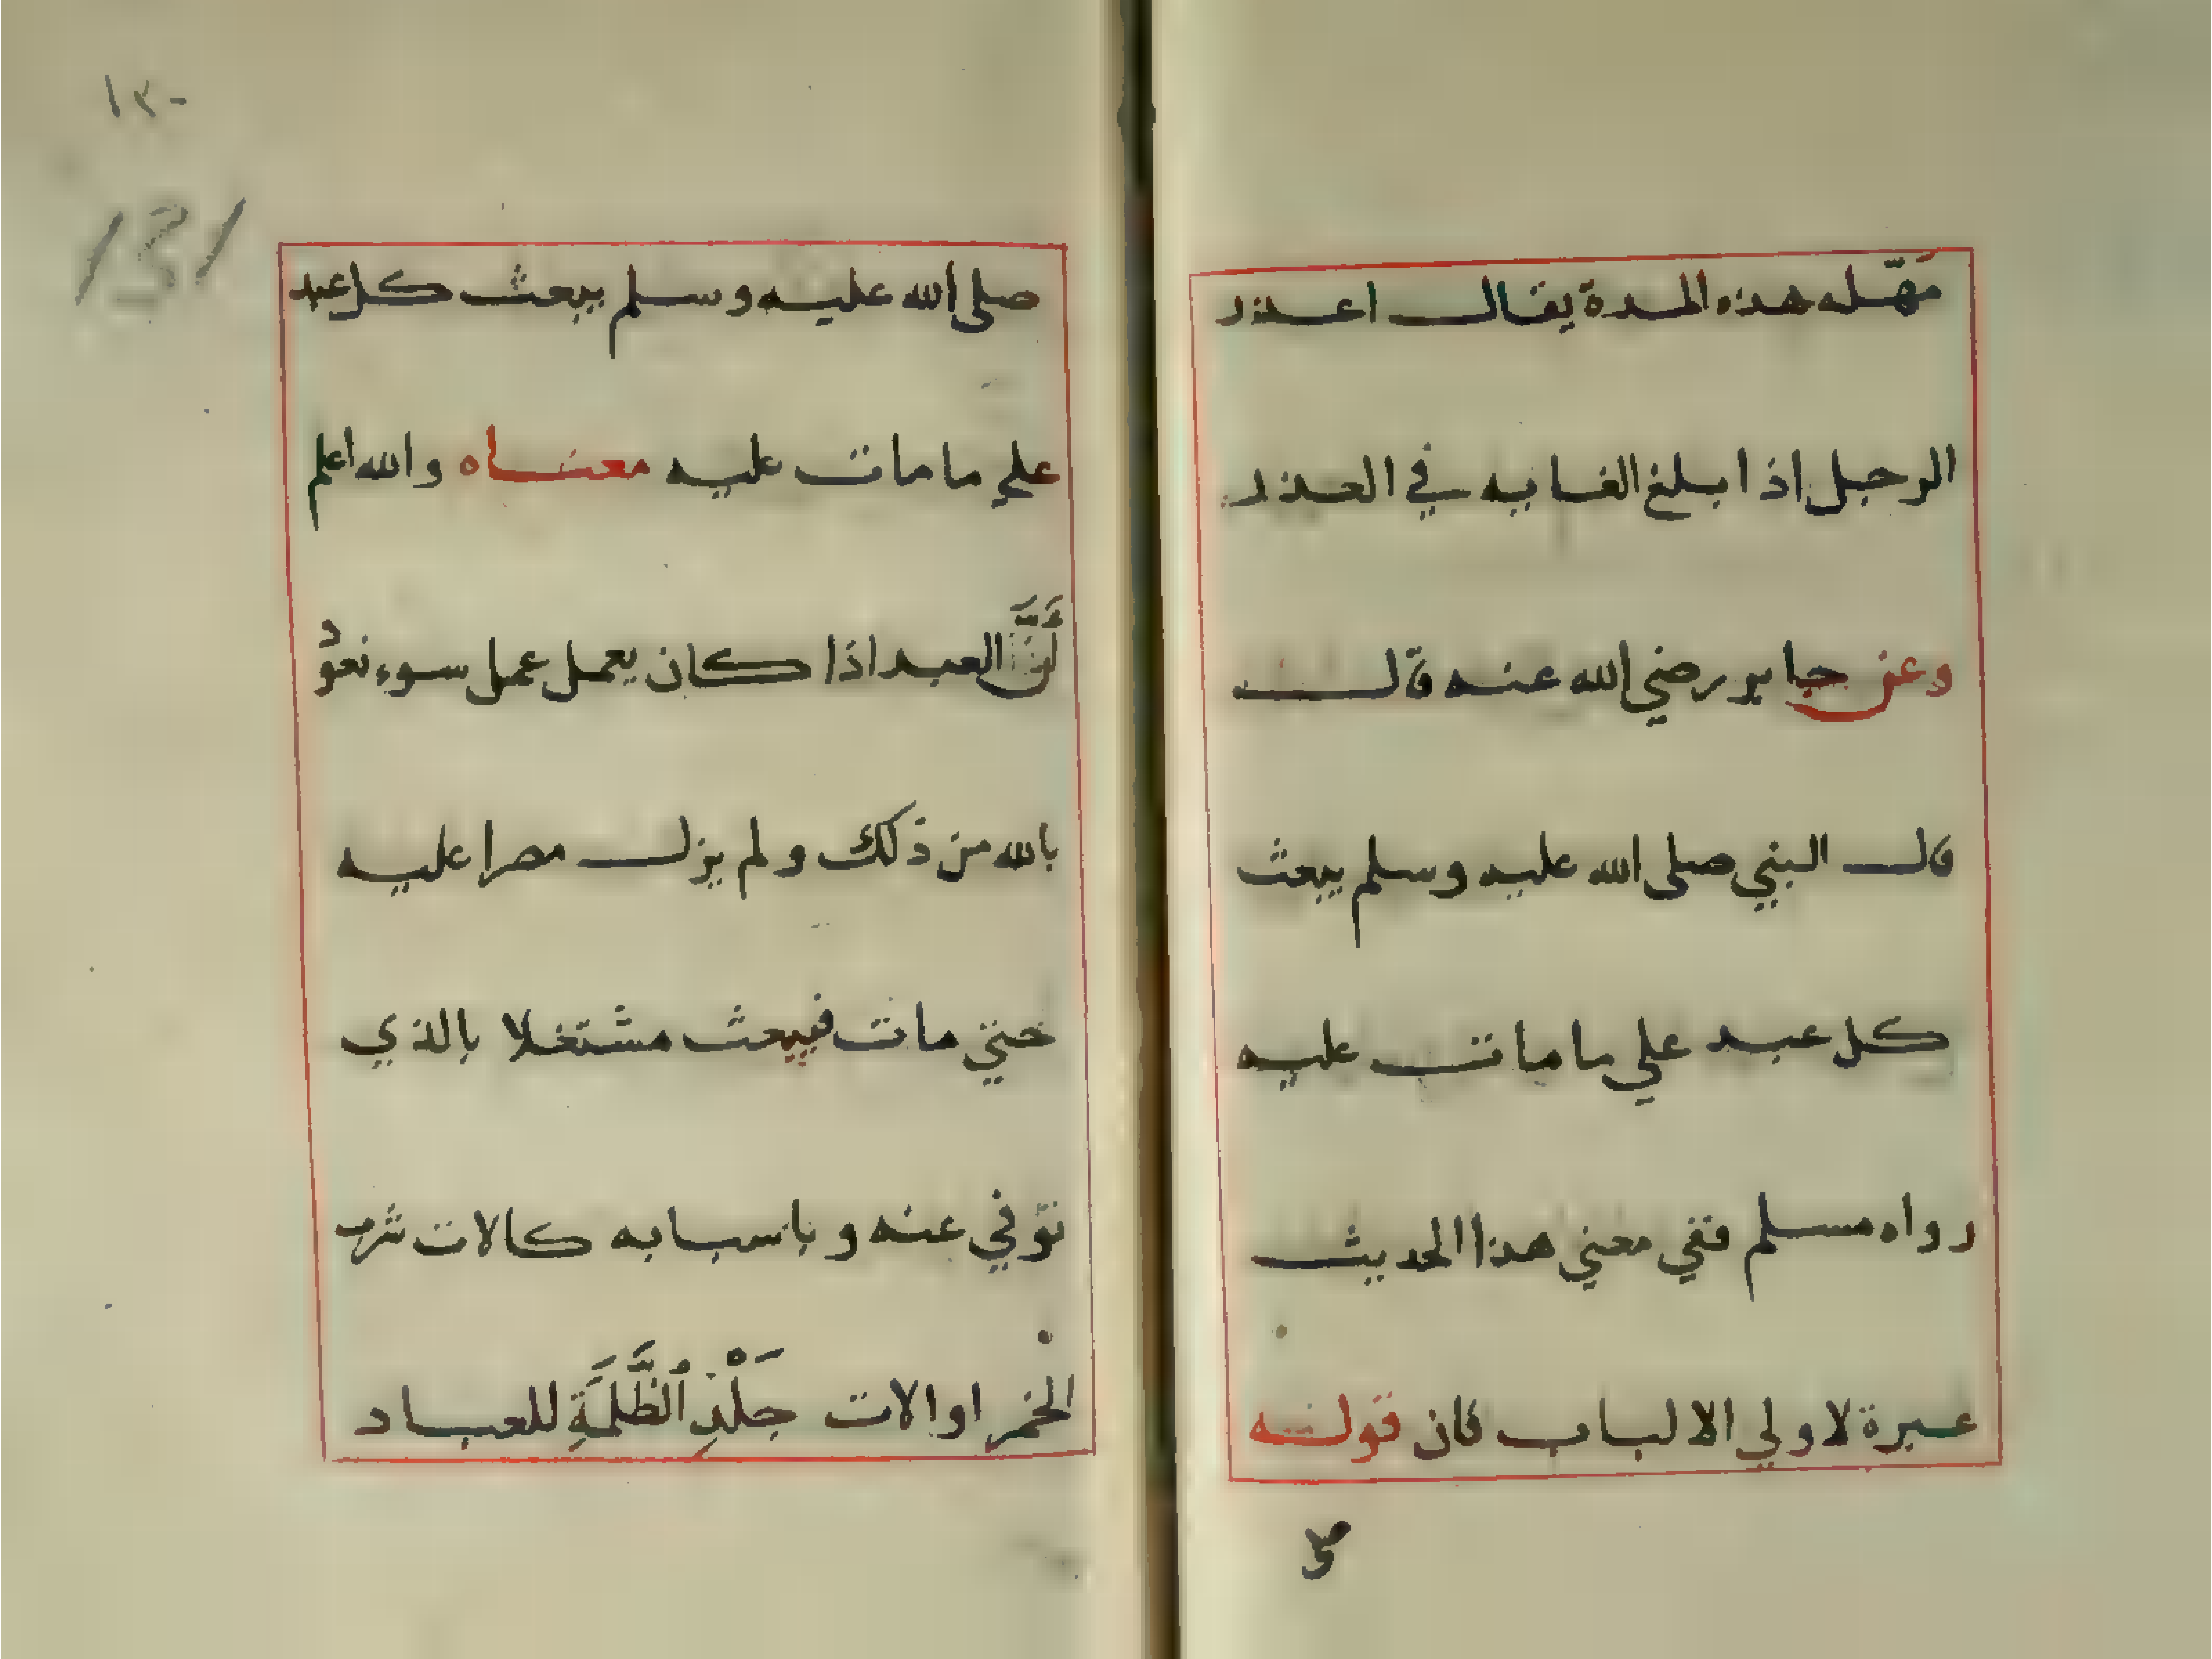 مهّله هذه المدة يقال اعذر
الرجل اذا بلغ الغايه في العذر
وعن جابر رضي الله عنه قال
قال النبي صلى الله عليه وسلم يبعث
كل عبد علي ما مات عليه
رواه مسلم ففي معني هذا الحديث
عبرة لاولي الالباب فان قوله
ص
١٣٠
131
صلى الله عليه وسلم يبعث كل عبد
علي ما مات عليه معناه والله اعلم
أنَّ العبد اذا كان يعمل عمل سوء نعوذ
بالله من ذلك ولم يزل مصرا عليه
حتي مات فيبعث مشتغلا بالذي
توفي عنه وباسبابه كالات شرب
الخمر او الات جَلْدِ ٱلظَّلَمَةِ للعباد